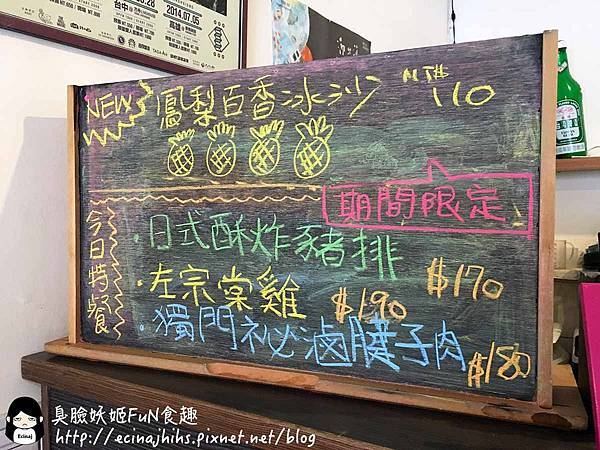 台中
2014.07.05
NEW 鳳梨百香冰沙 NT$110
期間限定
今日特餐
·日式酥炸豬排 $170
·左宗棠雞 $190
·獨門祕滷腱子肉 $180
Ecinaj
臭臉妖姬FuN食趣
http://ecinajhihs.pixnet.net/blog